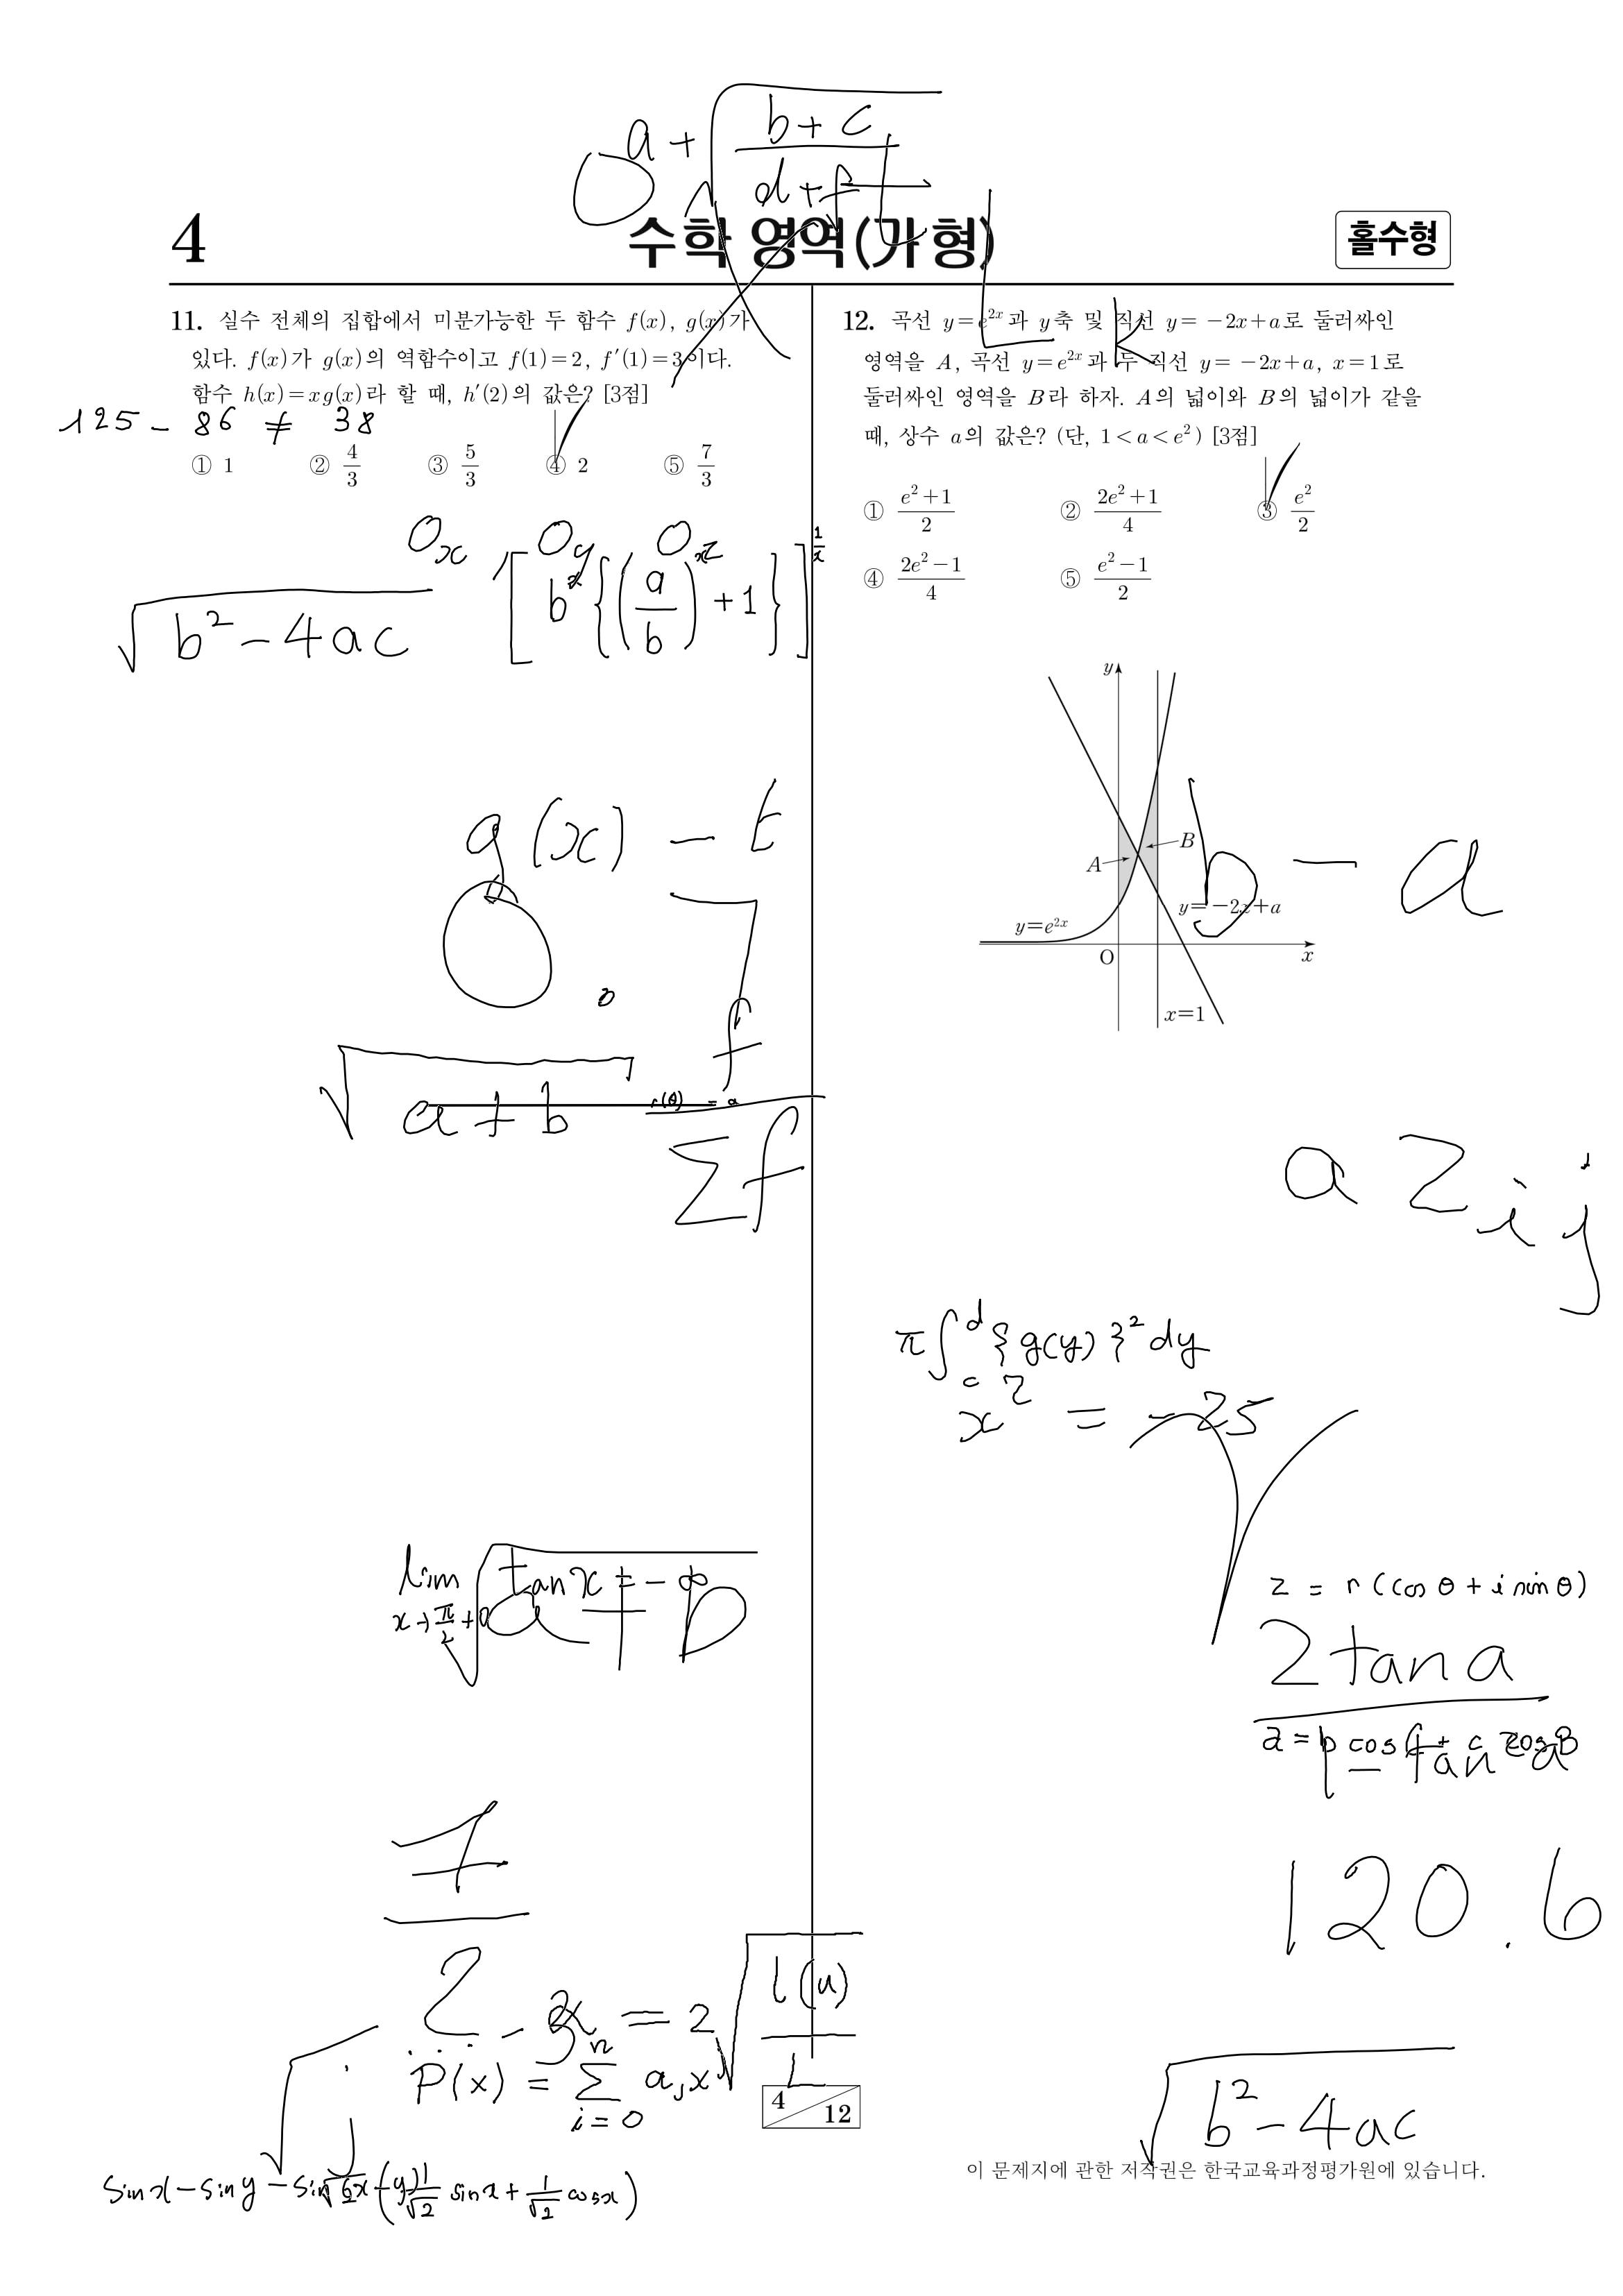 a + √((b + c)/(d + f))
4
수학 영역(가형)
홀수형
11. 실수 전체의 집합에서 미분가능한 두 함수 f(x), g(x)가
있다. f(x)가 g(x)의 역함수이고 f(1)=2, f′(1)=3이다.
함수 h(x)=xg(x)라 할 때, h′(2)의 값은? [3점]
125 - 86 ≠ 38
① 1 ② 4/3 ③ 5/3 ④ 2 ⑤ 7/3
√(b² - 4ac)
[b^x{(a/b)^x + 1}]^(1/x)
g(x) - t
√(a + b)
Σf
lim x→π/2+0 tan x = -∞
7/2
= 2√(l(u)/L)
P(x) = Σ i=0 n
12. 곡선 y=e^(2x)과 y축 및 직선 y=-2x+a로 둘러싸인
영역을 A, 곡선 y=e^(2x)과 두 직선 y=-2x+a, x=1로
둘러싸인 영역을 B라 하자. A의 넓이와 B의 넓이가 같을
때, 상수 a의 값은? (단, 1<a<e²) [3점]
① (e²+1)/2 ② (2e²+1)/4 ③ e²/2
④ (2e²-1)/4 ⑤ (e²-1)/2
y
A
B
y=-2x+a
y=e^(2x)
O
x
x=1
b - a
a z i j
π∫_c^d {g(y)}² dy
x² = -25
z = r(cos θ + i sin θ)
2 tan a
120.6
√(b² - 4ac)
4/12
이 문제지에 관한 저작권은 한국교육과정평가원에 있습니다.